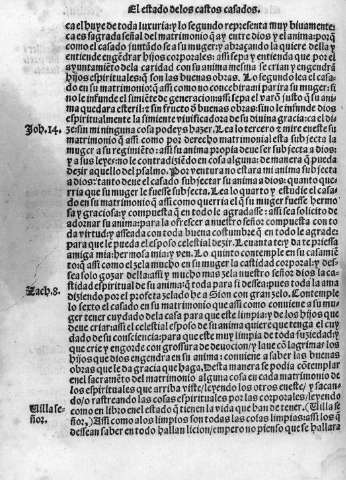 El estado delos castos casados.
ca el huye de toda luxuria/y lo segundo representa muy biuamente:
ca es sagrada señal del matrimonio q̃ ay entre dios y el anima:porq̃
como el casado juntãdo se a su muger:y abraçando la quiere della y
entiende engẽdrar hijos corporales: assi sepa y entienda que por el
ayuntamiẽto dela caridad con su anima mesma se crian y engendrã
hijos espirituales:q̃ son las buenas obras. Lo segundo lea el casa
do en su matrimonio:q̃ assi como no concebirani parira su muger:si
no le infunde el simiẽte de generacion:assi sepa el varõ justo q̃ su ani
ma quedara esteril:e sin fructo õ buenas obras:sino le infunde dios
espiritualmente la simiente viuificadora de su diuina gracia:ca el di
Job.14. ze:sin mi ninguna cosa podeys hazer. Lea lo tercero e mire eneste su
matrimonio q̃ assi como por derecho matrimonial esta subjecta la
muger a su regimiẽto:assi su anima propia deue ser subjecta a dios:
y a sus leyes:no le contradiziẽdo en cosa alguna:de manera q̃ pueda
dezir aquello del psalmo. Por ventura no estara mi anima subjecta
a dios:tanto deue el casado subjectar su anima a dios:quanto que-
rria que su muger le fuesse subjecta. Lea lo quarto y estudie el casa-
do en su matrimonio q̃ assi como querria el q̃ su muger fuesse hermo
sa y graciosa/y compuesta q̃ en todo le agradasse: assi sea solicito de
adornar su anima:para la ofrescer a nuestro señor compuesta con to
da virtud/y asseada con toda buena costumbre q̃ en todo le agrade:
para que le pueda el esposo celestial dezir. Leuanta te/y da te priessa
amiga mia:hermosa mia:y ven. Lo quinto contemple en su casamiẽ
to q̃ assi como el zela mucho en su muger la castidad corporal:y des-
sea solo gozar della:assi y mucho mas zela nuestro señor dios la cas-
tidad espiritual de su anima:q̃ toda para si dessea:pues toda la ama
Zach.8. diziendo por el profeta zelado he a Sion con gran zelo. Contemple
lo sexto el casado en su matrimonio que assi como conuiene a su mu-
ger tener cuydado dela casa para que este limpia:y de los hijos que
deue criar:assi el celestial esposo de su anima quiere que tenga el cuy
dado de su consciencia:para que este muy limpia de toda suziedad/y
que crie y engorde con grossura de deuocion/y laue cõ lagrimas los
hijos que dios engendra en su anima: conuiene a saber las buenas
obras que le da gracia que haga. Desta manera se podia cõtemplar
enel sacramẽto del matrimonio alguna cosa en cada matrimonio de
los espirituales que arriba viste/leyendo los otros en este/y sacan-
do/o rastreando las cosas espirituales por las corporales/leyendo
como en libro enel estado q̃ tienen la vida que han de tener. (Uilla se
Uilla se-
ñor. ñor,) Assi como alos limpios son todas las cosas limpias:assi los q̃
dessean saber en todo hallan licion/empero no pienso que se hallara